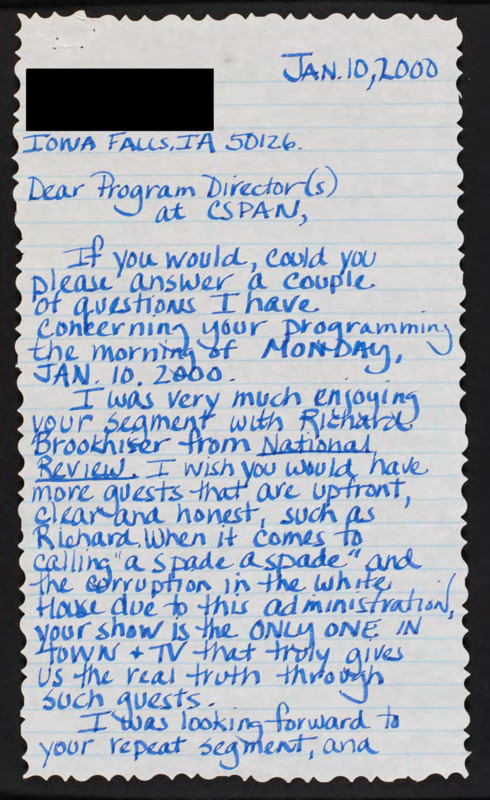 JAN. 10, 2000
IOWA FALLS, IA 50126.
Dear Program Director(s)
at CSPAN,
If you would, could you
please answer a couple
of questions I have
concerning your programming
the morning of MONDAY,
JAN. 10. 2000.
I was very much enjoying
your segment with Richard
Brookhiser from National
Review. I wish you would have
more guests that are upfront,
clear and honest, such as
Richard. When it comes to
calling "a spade a spade" and
the corruption in the White
House due to this administration,
your show is the ONLY ONE IN
TOWN + TV that truly gives
us the real truth through
such guests.
I was looking forward to
your repeat segment, and